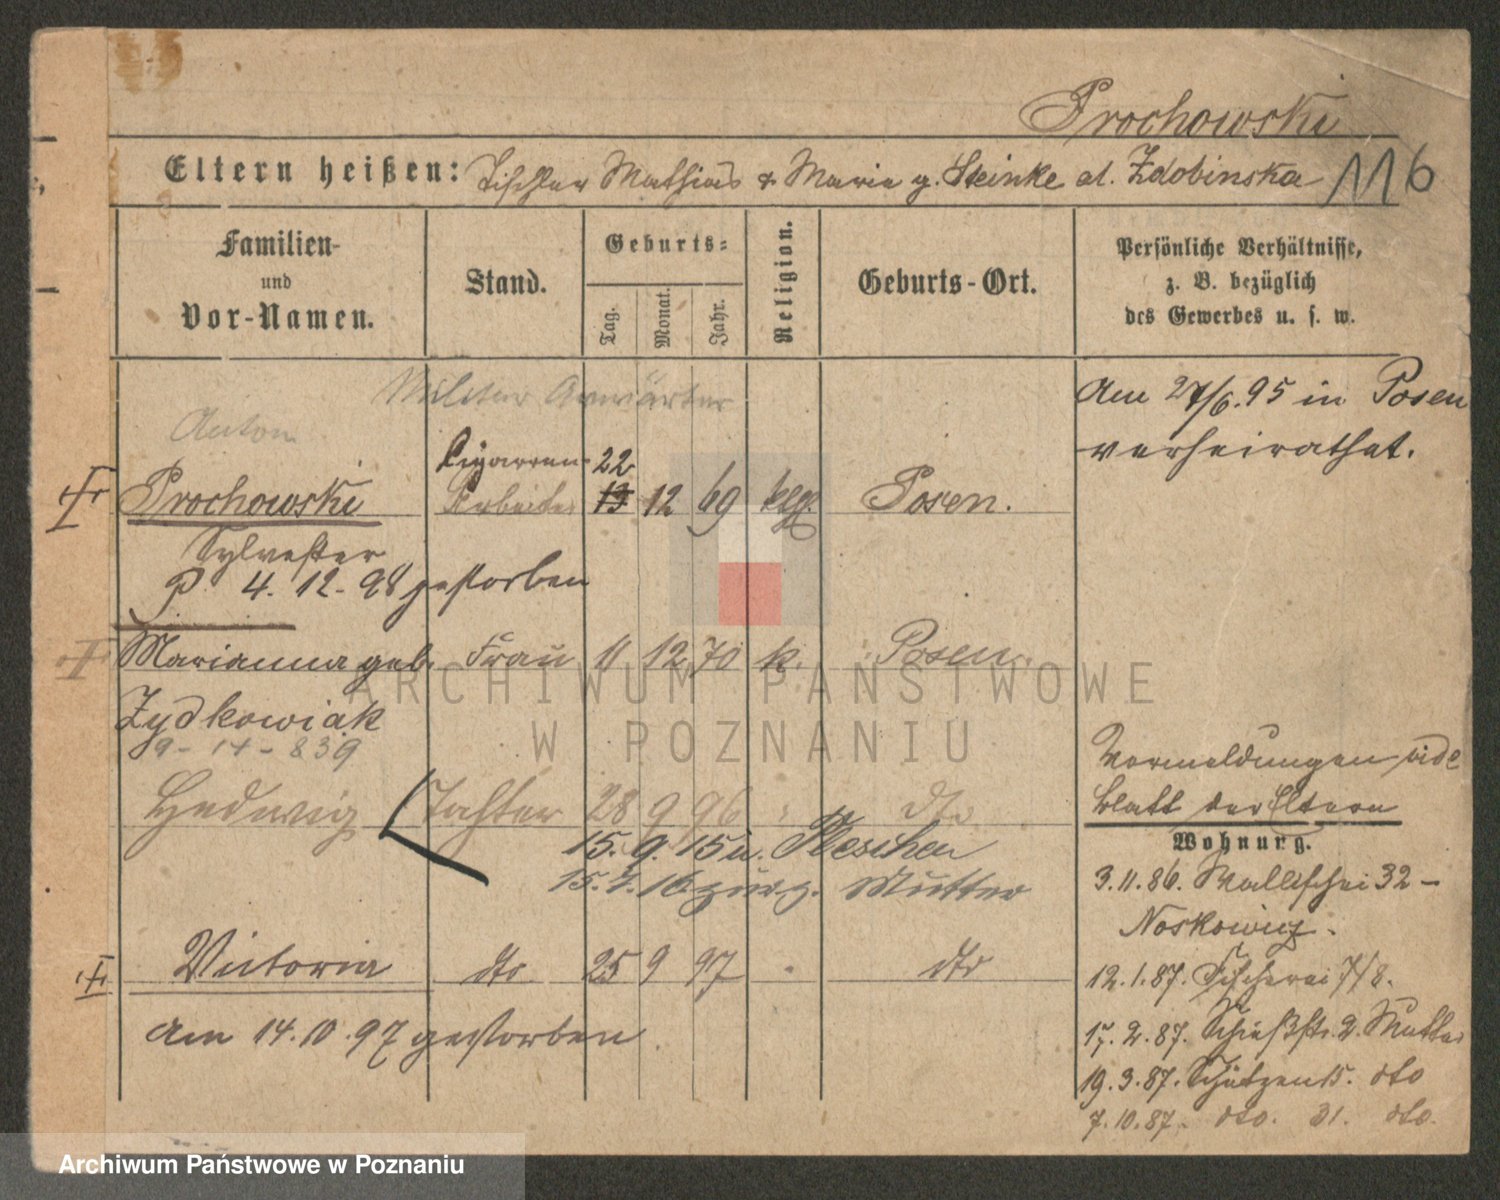 Prochowski
Eltern heißen: Tischler Mathias & Marie g. Steinke al. Zdobinska 116
Familien- und Vor-Namen.
Stand.
Geburts-:
Tag.
Monat.
Jahr.
Religion.
Geburts-Ort.
Persönliche Verhältnisse,
z. B. bezüglich
des Gewerbes u. s. w.
Militär Anwärter
Am 27/6.95 in Posen
verheirathet.
Anton
Cigarren- 22
Prochowski Arbeiter 13 12 69 kth. Posen.
Sylvester
P. 4. 12. 98 gestorben
Marianna geb. Frau 11 12 70 k. Posen.
Zydkowiak
9-14-839
Vormeldungen vide
Blatt der Eltern
Hedwig Tochter 28 9 96 dto
15. 9. 15 n. Pleschen
15. 7. 16 zurg. Mutter
Wohnung.
3.11.86. Wallischei 32 -
Noskowicz.
Victoria dto 25 9 97 dto
12.1.87. Fischerei 7/8.
am 14.10.97 gestorben
17.2.87. Schießstr. 2. Mutter
19.3.87. Schützen 15. dto
7.10.87. dto. 31. dto.
ARCHIWUM PAŃSTWOWE
W POZNANIU
Archiwum Państwowe w Poznaniu